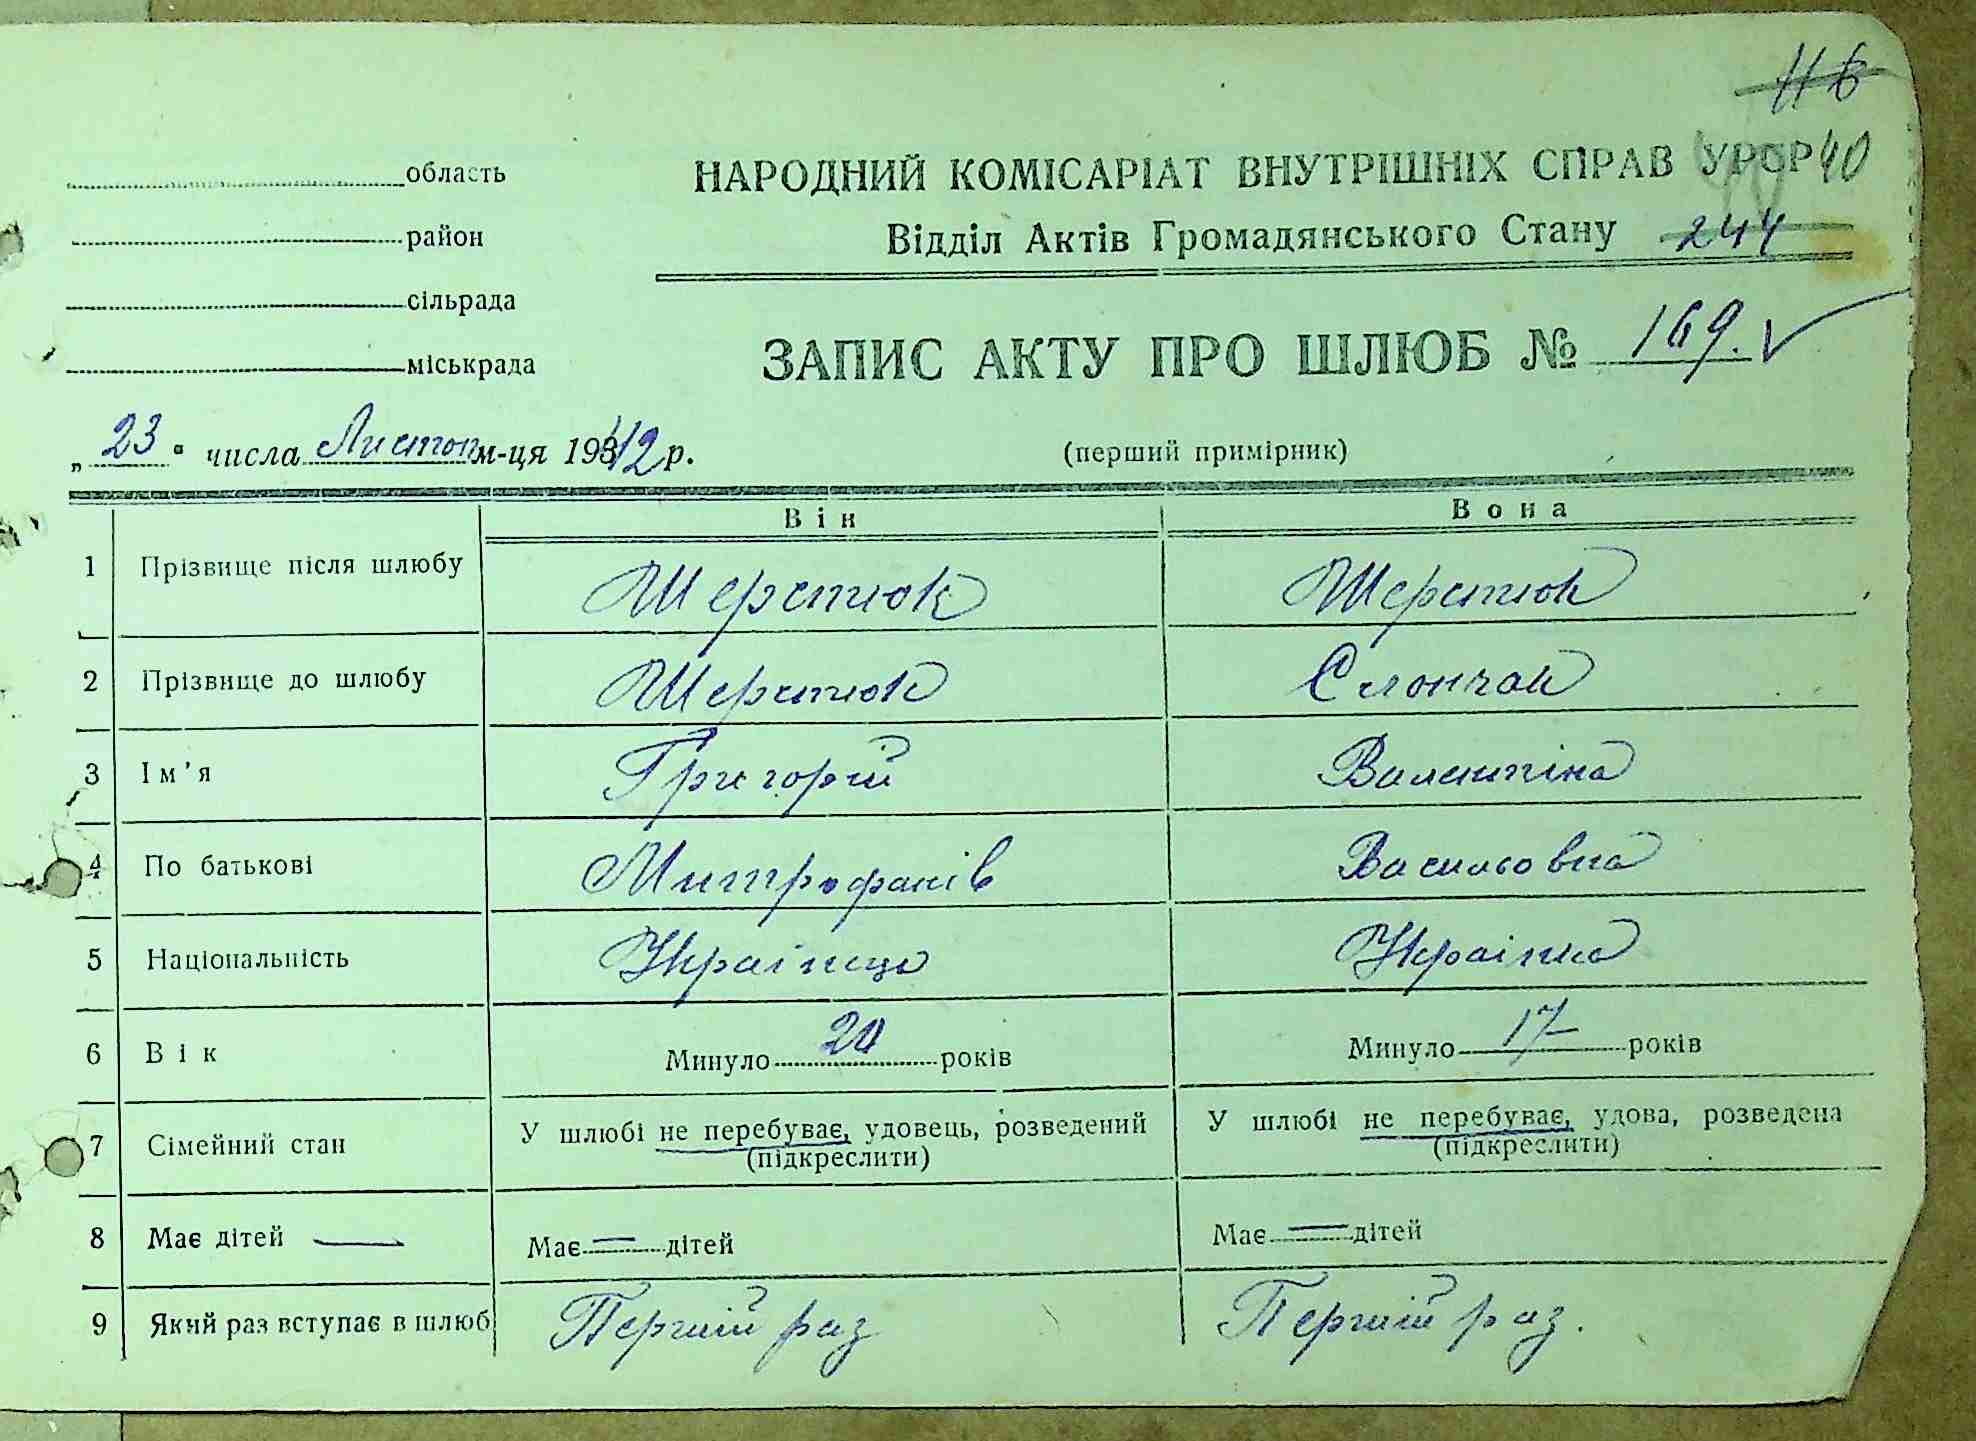 116
область
НАРОДНИЙ КОМІСАРІАТ ВНУТРІШНІХ СПРАВ УРСР 40
район
Відділ Актів Громадянського Стану 244
сільрада
ЗАПИС АКТУ ПРО ШЛЮБ № 169.
міськрада
„23" числа Листоп м-ця 1942 р.
(перший примірник)
Він Вона
1 Прізвище після шлюбу Шерстюк Шерстюк
2 Прізвище до шлюбу Шерстюк Слончак
3 Ім'я Григорій Валентіна
4 По батькові Митрофанів Васильовна
5 Національність Українец Українка
6 Вік Минуло 20 років Минуло 17 років
7 Сімейний стан У шлюбі не перебуває, удовець, розведений У шлюбі не перебуває, удова, розведена
(підкреслити) (підкреслити)
8 Має дітей — Має — дітей Має — дітей
9 Який раз вступає в шлюб Перший раз Перший раз.